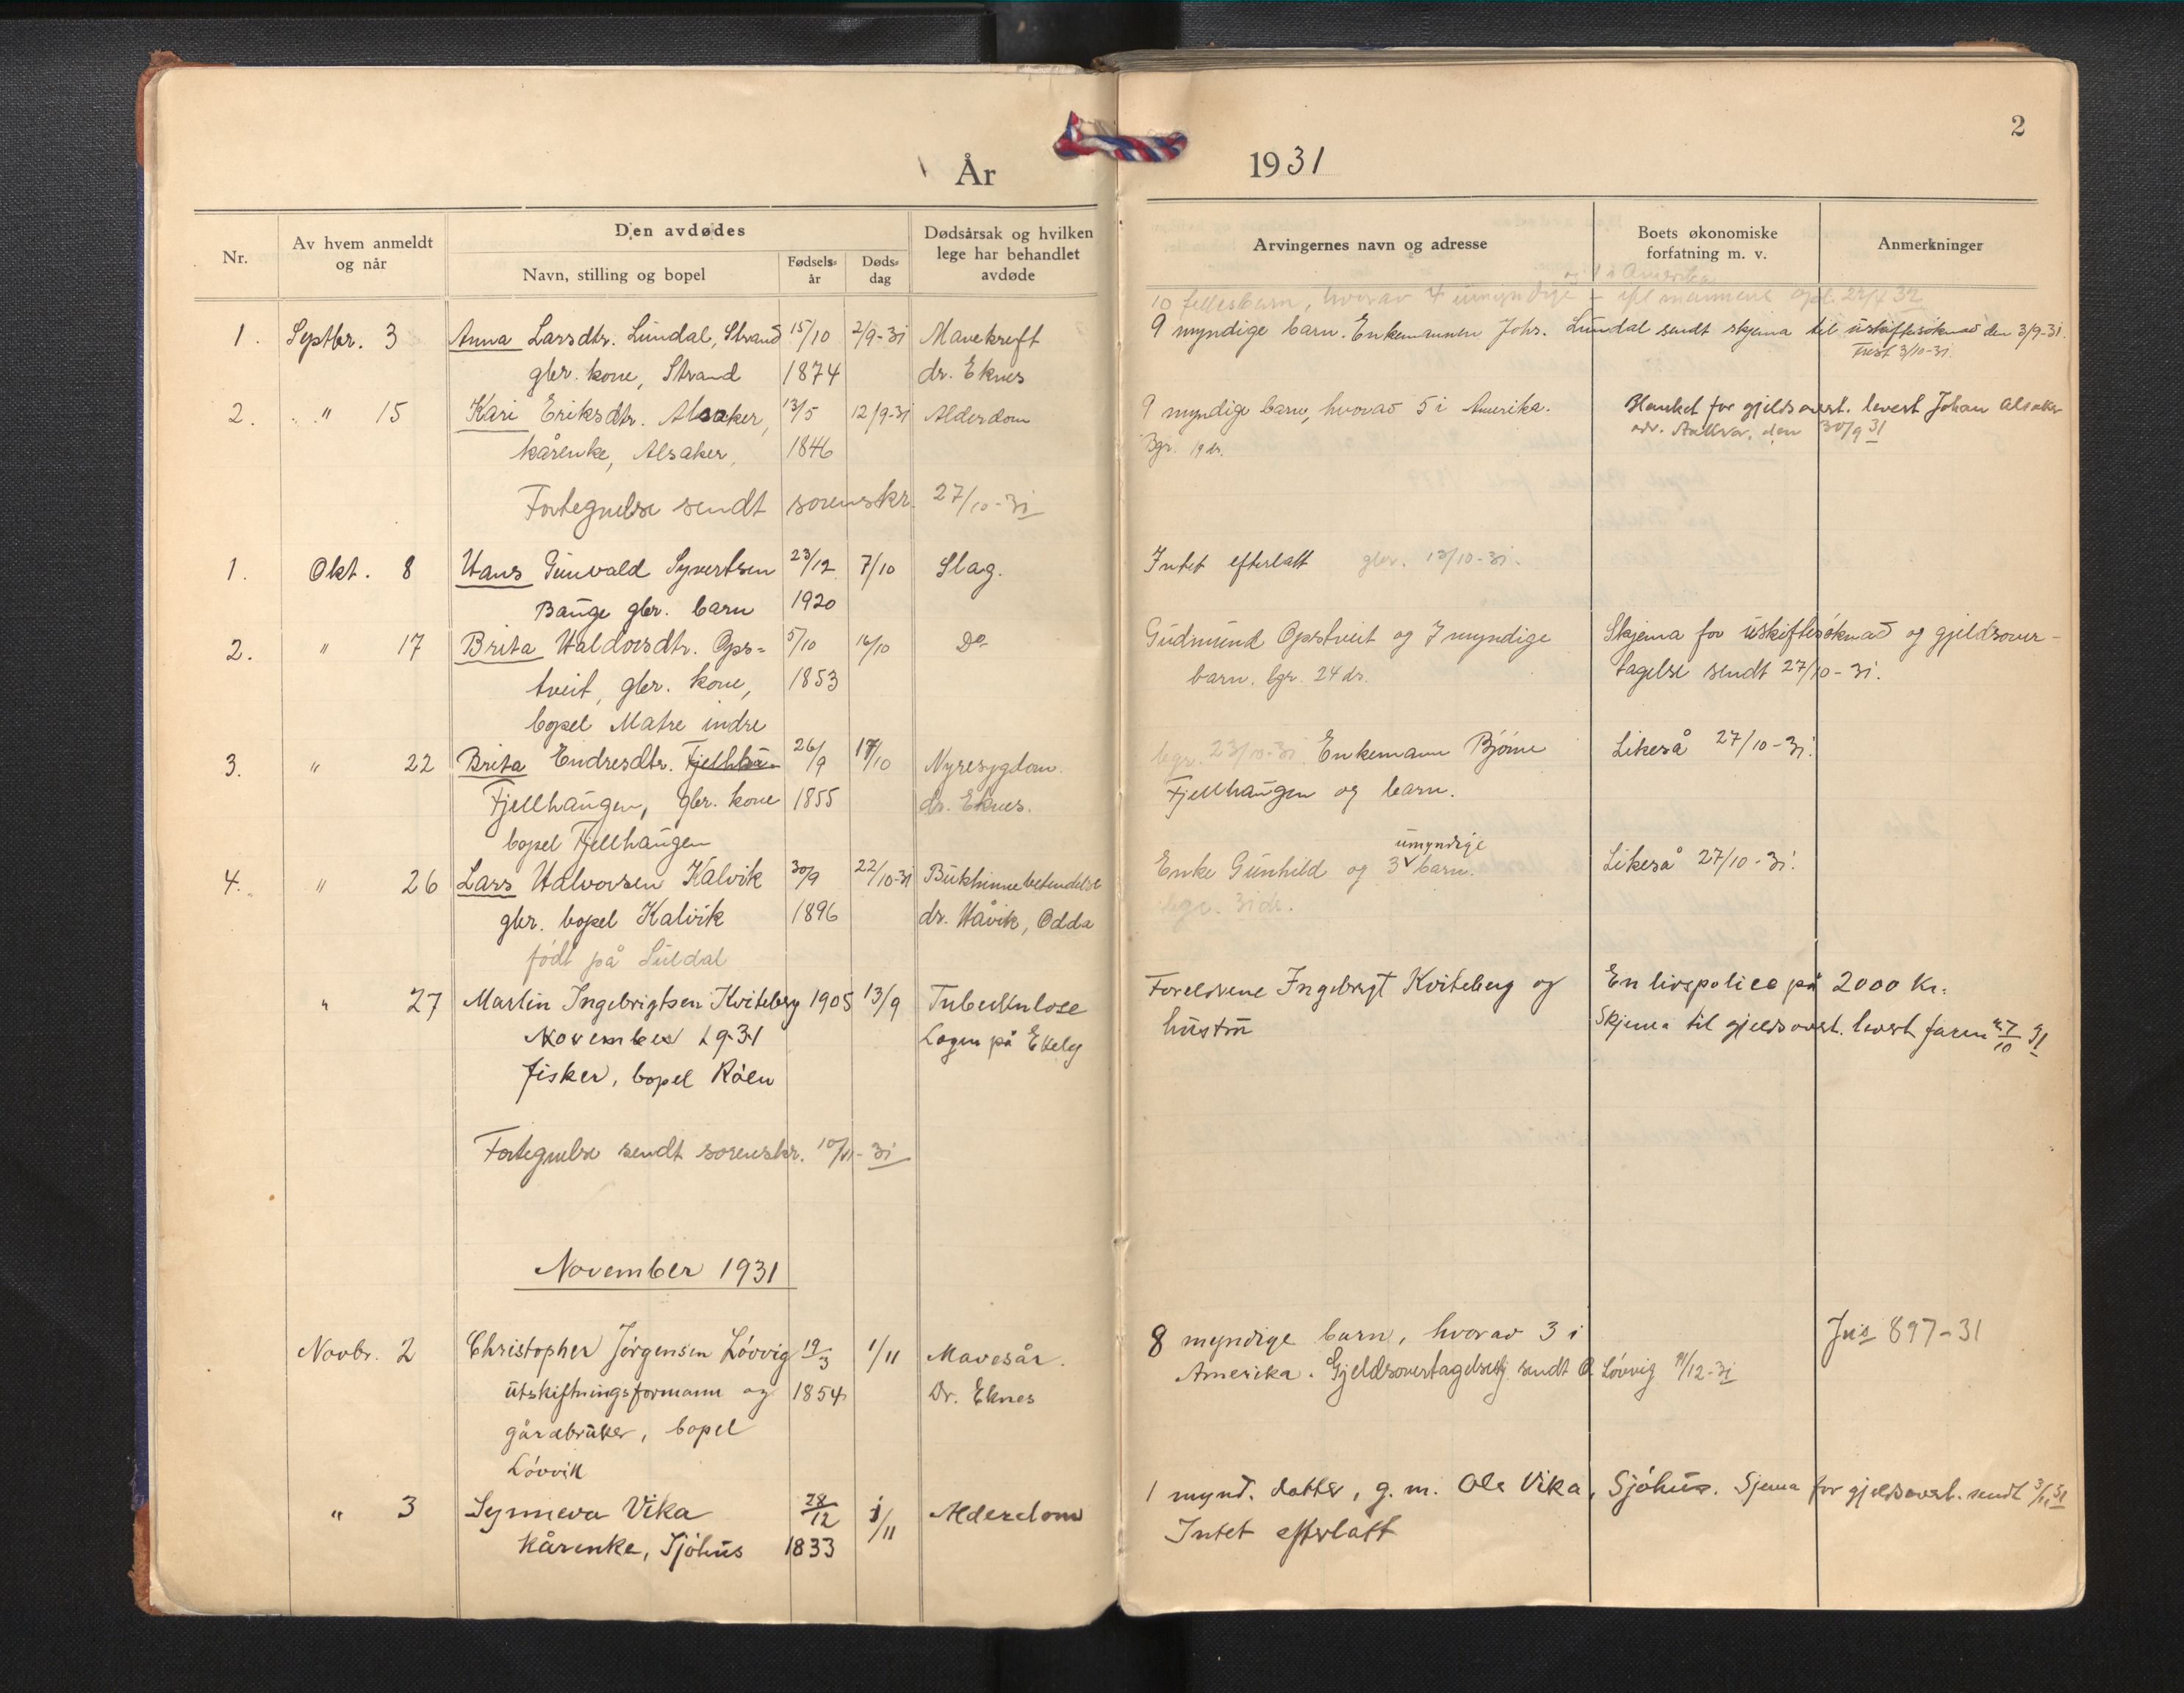 2
År 1931
Nr.
Av hvem anmeldt
og når
Den avdødes
Navn, stilling og bopel
Fødsels-
år
Døds-
dag
Dødsårsak og hvilken
lege har behandlet
avdøde
Arvingernes navn og adresse
Boets økonomiske
forfatning m. v.
Anmerkninger
og 1 i Amerika
10 fellesbarn, hvorav 4 umyndige - ifl mannens opl. 22/4 32
1. Septbr. 3 Anna Larsdtr. Lundal, Strand 15/10 2/9-31 Mavekreft 9 myndige barn. Enkemannen Johs. Lundal sendt skjema til uskiftesøknad den 3/9-31.
Frist 3/10-31.
gbr. kone, Strand 1874 dr. Eknes
2. " 15 Kari Eriksdtr. Alsaker, 13/5 12/9-31 Alderdom 9 myndige barn, hvorav 5 i Amerika. Blanket for gjeldsovert. levert Johan Alsaker
adr. den 30/9 31
kårenke, Alsaker, 1846 Bgr. 19 ds.
Fortegnelse sendt sorenskr. 27/10-31
1. Okt. 8 Hans Gunvald Syvertsen 23/12 7/10 Slag. Intet efterlatt gbr. 13/10-31.
Bauge gbr. barn 1920
2. " 17 Brita Haldorsdtr. Ops= 5/10 16/10 Do Gudmund Opstveit og 7 myndige Skjema for uskiftesøknad og gjeldsover-
tveit, gbr. kone, 1853 barn. bgr. 24 ds. tagelse sendt 27/10-31.
bopel Matre indre
3. " 22 Brita Endresdtr. Fjellhau- 26/9 17/10 Nyresygdom. bgr. 23/10-31 Enkemann Bjørne Likeså 27/10-31.
Fjellhaugen, gbr. kone 1855 dr. Eknes. Fjellhaugen og barn.
bopel Fjellhaugen
umyndige
4. " 26 Lars Halvorsen Kalvik 30/9 22/10-31 Bukhinnebetendelse Enke Gunhild og 3 barn. Likeså 27/10-31.
gbr. bopel Kalvik 1896 dr. Håvik, Odda bgr. 31 ds.
født på Suldal
" 27 Martin Ingebrigtsen Kviteberg 1905 13/9 Tuberkulose Foreldrene Ingebrigt Kviteberg og En livspolice på 2000 Kr.
November 1931 Legen på Ekely hustru Skjema til gjeldsovert. levert faren 27/10 31
fisker, bopel Røen
Fortegnelse sendt sorenskr. 10/11-31
November 1931
Novbr. 2 Christopher Jørgensen Løvvig 19/3 1/11 Mavesår. 8 myndige barn, hvorav 3 i 897-31
utskiftningsformann og 1854 Dr. Eknes Amerika. Gjeldsovertagelsesskj. sendt O. Løvvig 11/12-31
gårdbruker, bopel
Løvvik
" 3 Synneva Vika 28/12 1/11 Alderdom 1 mynd. datter, g. m. Ole Vika, Sjøhus. Sjema for gjeldsovert. sendt 3/11 31
kårenke, Sjøhus 1833 Intet efterlatt